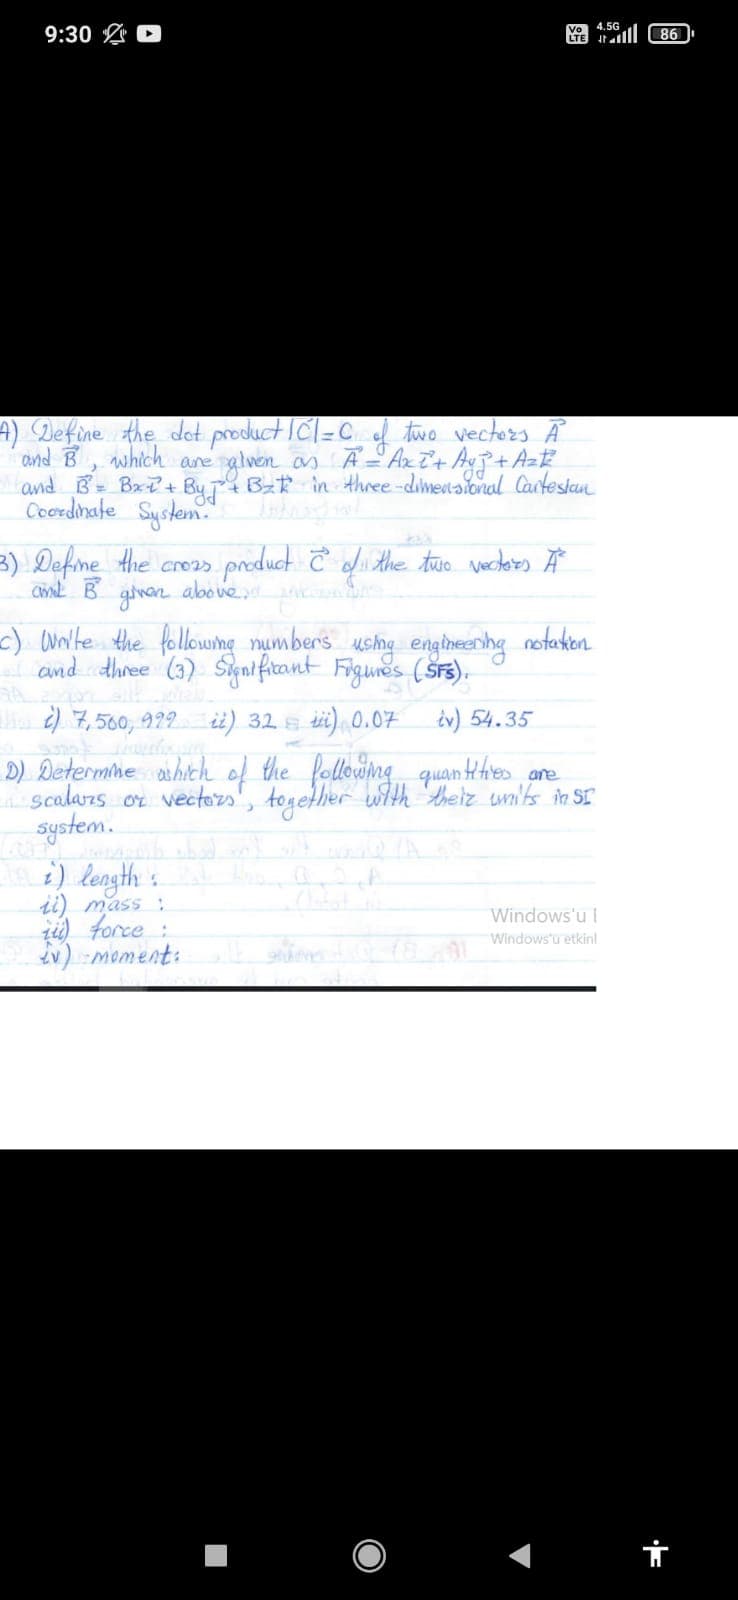 9:30
Vo LTE 4.5G 86
A) Define the dot product |C⃗|=C of two vectors A⃗
and B⃗, which are given as A⃗ = Axi⃗ + Ayj⃗ + Azk⃗
and B⃗ = Bxi⃗ + Byj⃗ + Bzk⃗ in three-dimensional Cartesian
Coordinate System.
B) Define the cross product C⃗ of the two vectors A⃗
and B⃗ given above.
C) Write the following numbers using engineering notation
and three (3) Significant Figures (SFs).
i) 7,560,999 ii) 32 iii) 0.07 iv) 54.35
D) Determine which of the following quantities are
scalars or vectors, together with their units in SI
system.
i) length :
ii) mass :
iii) force :
iv) moment:
Windows'u
Windows'u etkinl